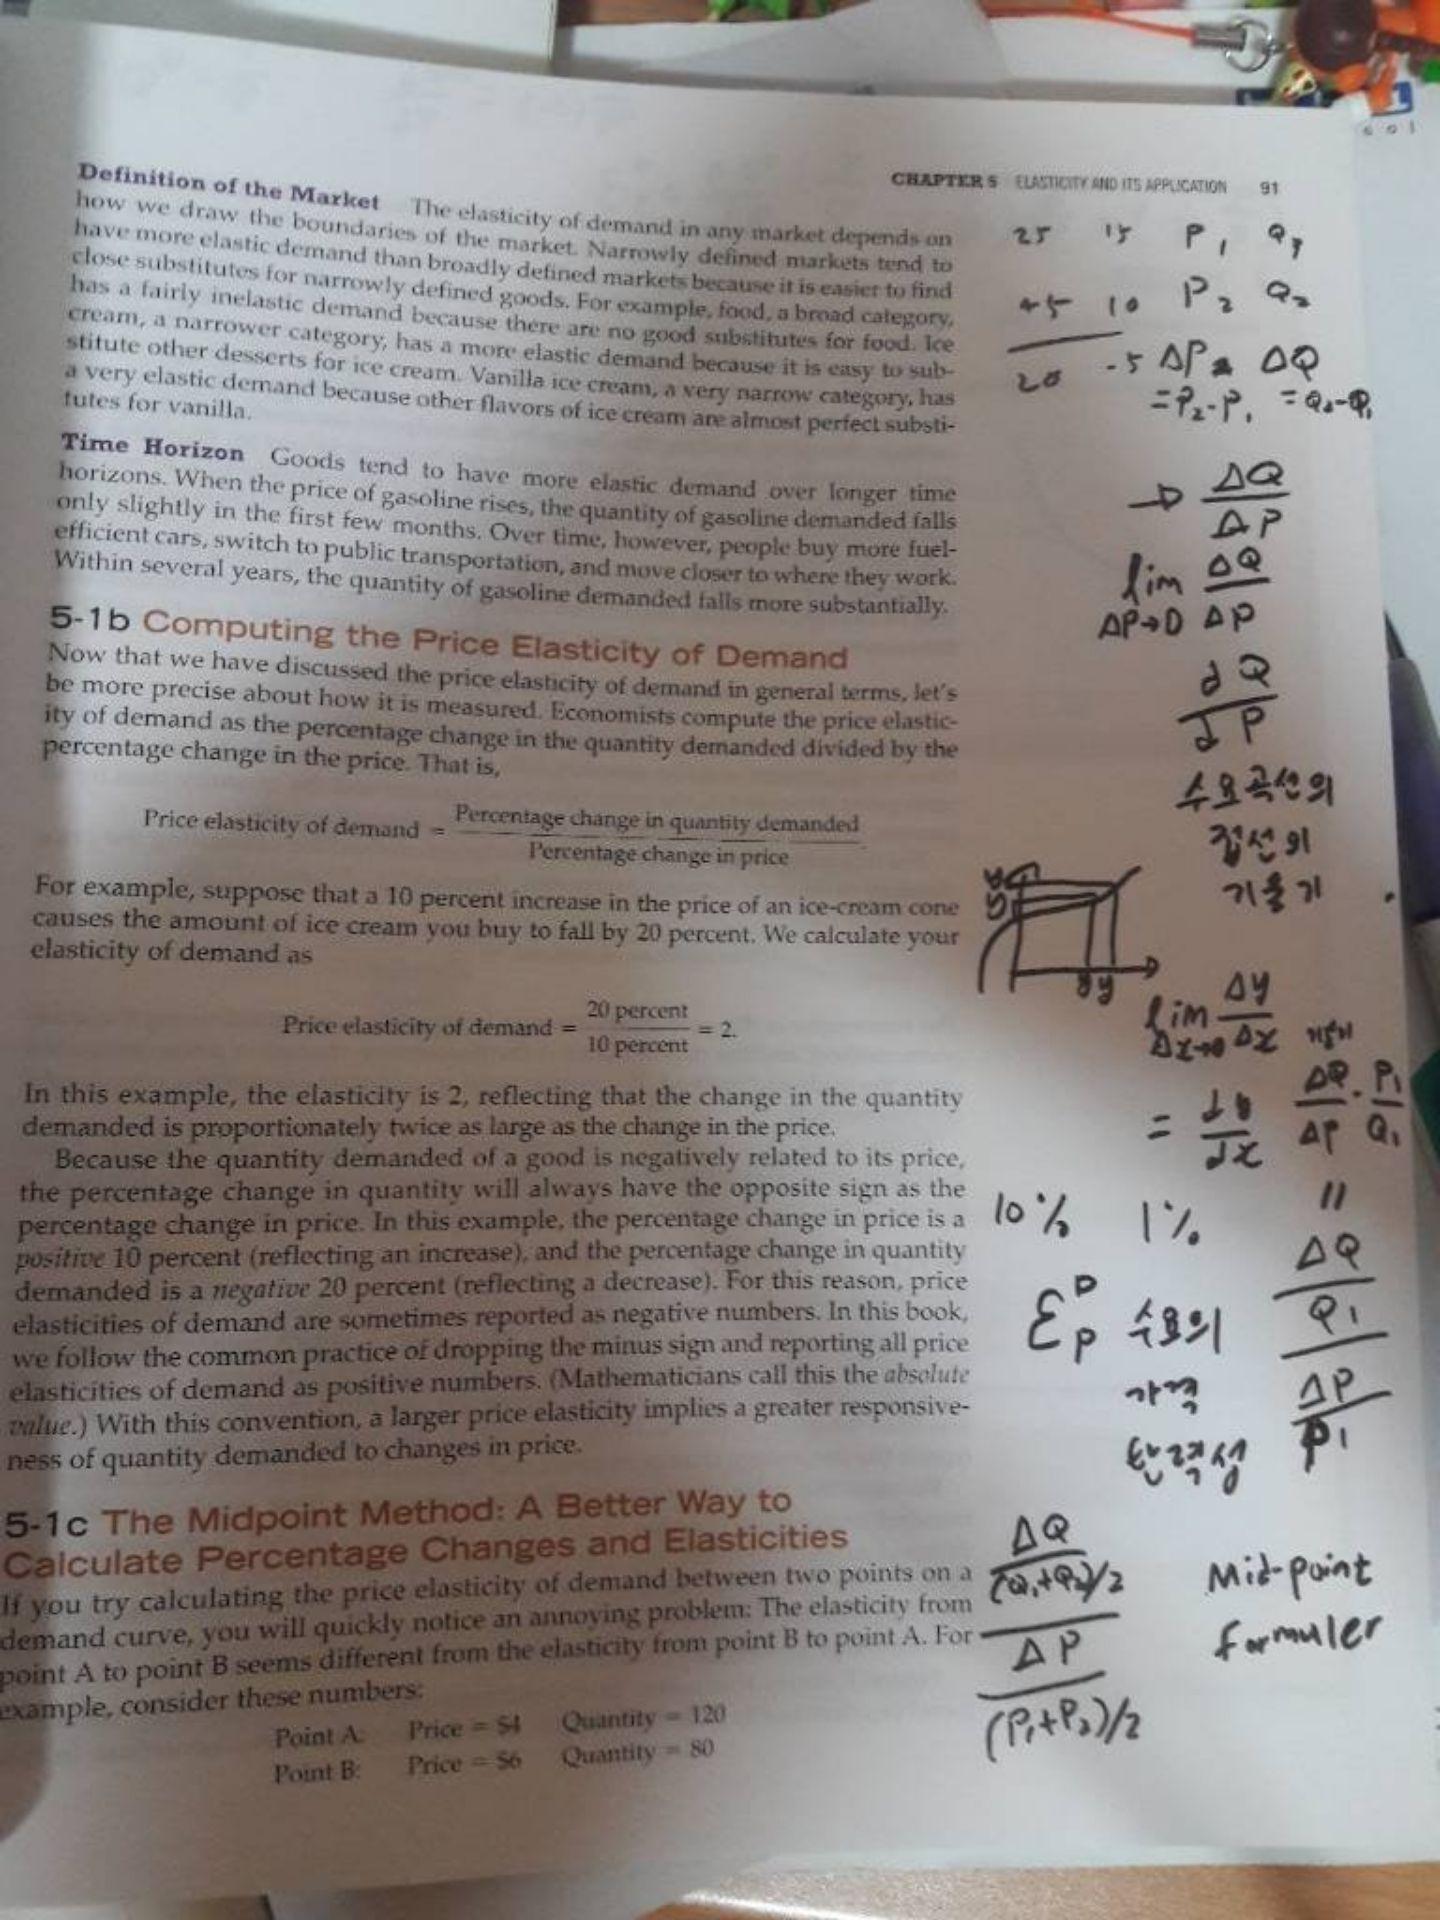 CHAPTER 5 ELASTICITY AND ITS APPLICATION 91
Definition of the Market The elasticity of demand in any market depends on
how we draw the boundaries of the market. Narrowly defined markets tend to
have more elastic demand than broadly defined markets because it is easier to find
close substitutes for narrowly defined goods. For example, food, a broad category,
has a fairly inelastic demand because there are no good substitutes for food. Ice
cream, a narrower category, has a more elastic demand because it is easy to sub-
stitute other desserts for ice cream. Vanilla ice cream, a very narrow category, has
a very elastic demand because other flavors of ice cream are almost perfect substi-
tutes for vanilla.
Time Horizon Goods tend to have more elastic demand over longer time
horizons. When the price of gasoline rises, the quantity of gasoline demanded falls
only slightly in the first few months. Over time, however, people buy more fuel-
efficient cars, switch to public transportation, and move closer to where they work.
Within several years, the quantity of gasoline demanded falls more substantially.
5-1b Computing the Price Elasticity of Demand
Now that we have discussed the price elasticity of demand in general terms, let's
be more precise about how it is measured. Economists compute the price elastic-
ity of demand as the percentage change in the quantity demanded divided by the
percentage change in the price. That is,
Price elasticity of demand = Percentage change in quantity demanded
Percentage change in price
For example, suppose that a 10 percent increase in the price of an ice-cream cone
causes the amount of ice cream you buy to fall by 20 percent. We calculate your
elasticity of demand as
Price elasticity of demand = 20 percent / 10 percent = 2.
In this example, the elasticity is 2, reflecting that the change in the quantity
demanded is proportionately twice as large as the change in the price.
Because the quantity demanded of a good is negatively related to its price,
the percentage change in quantity will always have the opposite sign as the
percentage change in price. In this example, the percentage change in price is a
positive 10 percent (reflecting an increase), and the percentage change in quantity
demanded is a negative 20 percent (reflecting a decrease). For this reason, price
elasticities of demand are sometimes reported as negative numbers. In this book,
we follow the common practice of dropping the minus sign and reporting all price
elasticities of demand as positive numbers. (Mathematicians call this the absolute
value.) With this convention, a larger price elasticity implies a greater responsive-
ness of quantity demanded to changes in price.
5-1c The Midpoint Method: A Better Way to
Calculate Percentage Changes and Elasticities
If you try calculating the price elasticity of demand between two points on a
demand curve, you will quickly notice an annoying problem: The elasticity from
point A to point B seems different from the elasticity from point B to point A. For
example, consider these numbers:
Point A: Price = $4 Quantity = 120
Point B: Price = $6 Quantity = 80
25 15 P1
45 10 P2 Q2
20 -5 ΔP ΔQ
=P2-P1 =Q2-Q1
→ ΔQ
ΔP
lim ΔQ
ΔP→0 ΔP
dQ
dP
수요곡선의
접선의
기울기
lim Δy
Δx→0 Δx 기울기
= dy
dx
ΔQ . P1
ΔP Q1
10% 1% =
ΔQ
Q1
ΔP
P1
ε D P 수요의
가격
탄력성
ΔQ
(Q1+Q2)/2
ΔP
(P1+P2)/2
Mid-point
formuler